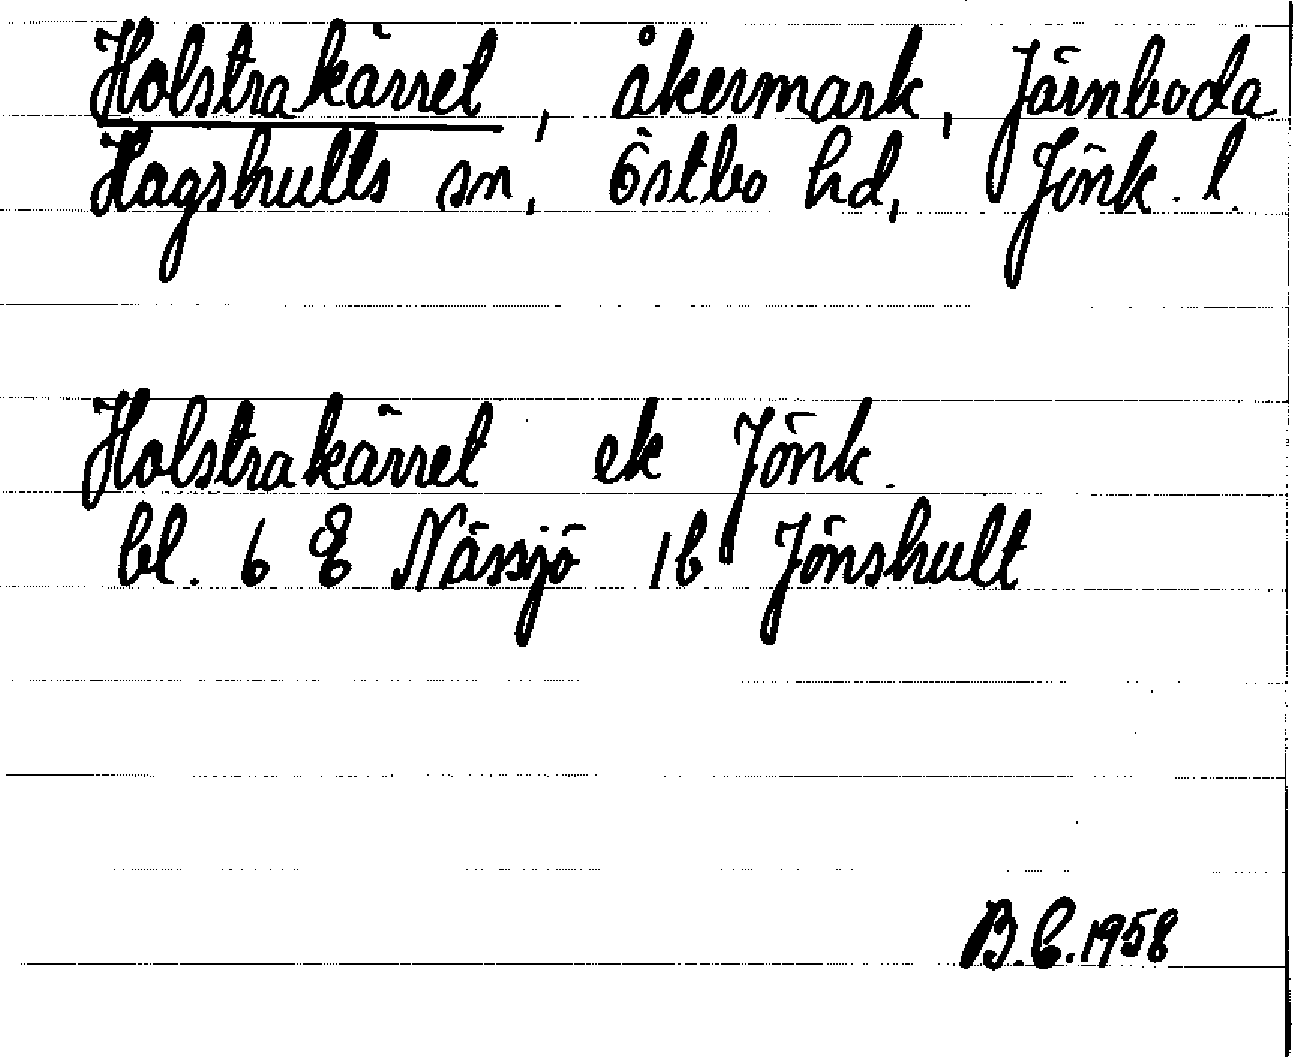 Holstrakärret, åkermark, Järnboda
Hagshults sn, Östbo hd, Jönk. l.
Holstrakärret ek Jönk.
bl. 6 E Nässjö 1b Jönshult
B.C.1958